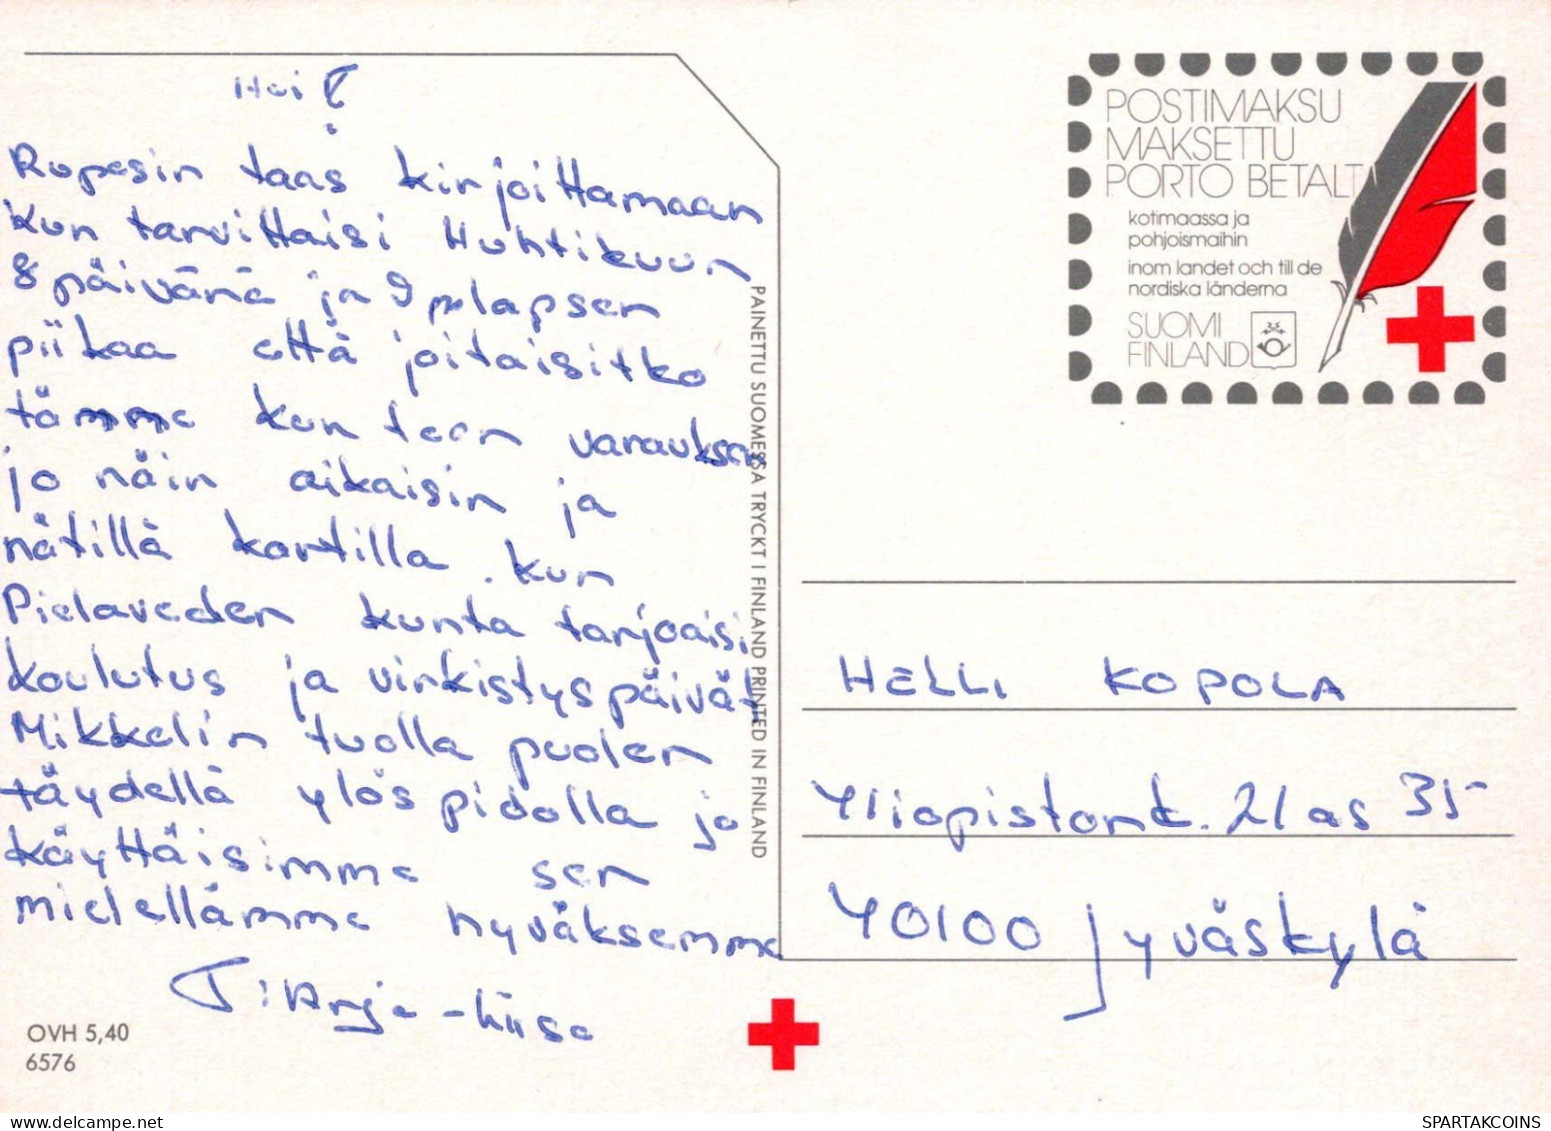 Hei!
Rupesin taas kirjoittamaan
kun tarvittaisi Huhtikuun
8 päivänä ja 9 p lapsen
piikaa että joitaisitko
tämme kun teen varauksen
jo näin aikaisin ja
nätillä kortilla. kun
Pielaveden kunta tarjoaisi
koulutus ja virkistyspäivät
Mikkelin tuolla puolen
täydellä ylöspidolla ja
käyttäisimme sen
mielellämme hyväksemme
T: Arja-Liisa
OVH 5,40
6576
PAINETTU SUOMESSA TRYCKT I FINLAND PRINTED IN FINLAND
POSTIMAKSU
MAKSETTU
PORTO BETALT
kotimaassa ja
pohjoismaihin
inom landet och till de
nordiska länderna
SUOMI
FINLAND
HELLI KOPOLA
Yliopistonk. 21 as 35
40100 Jyväskylä
SPARTAKCOINS